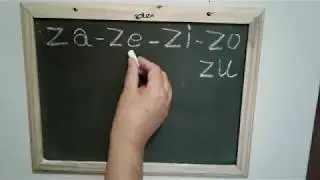 za-ze-zi-zo
zu